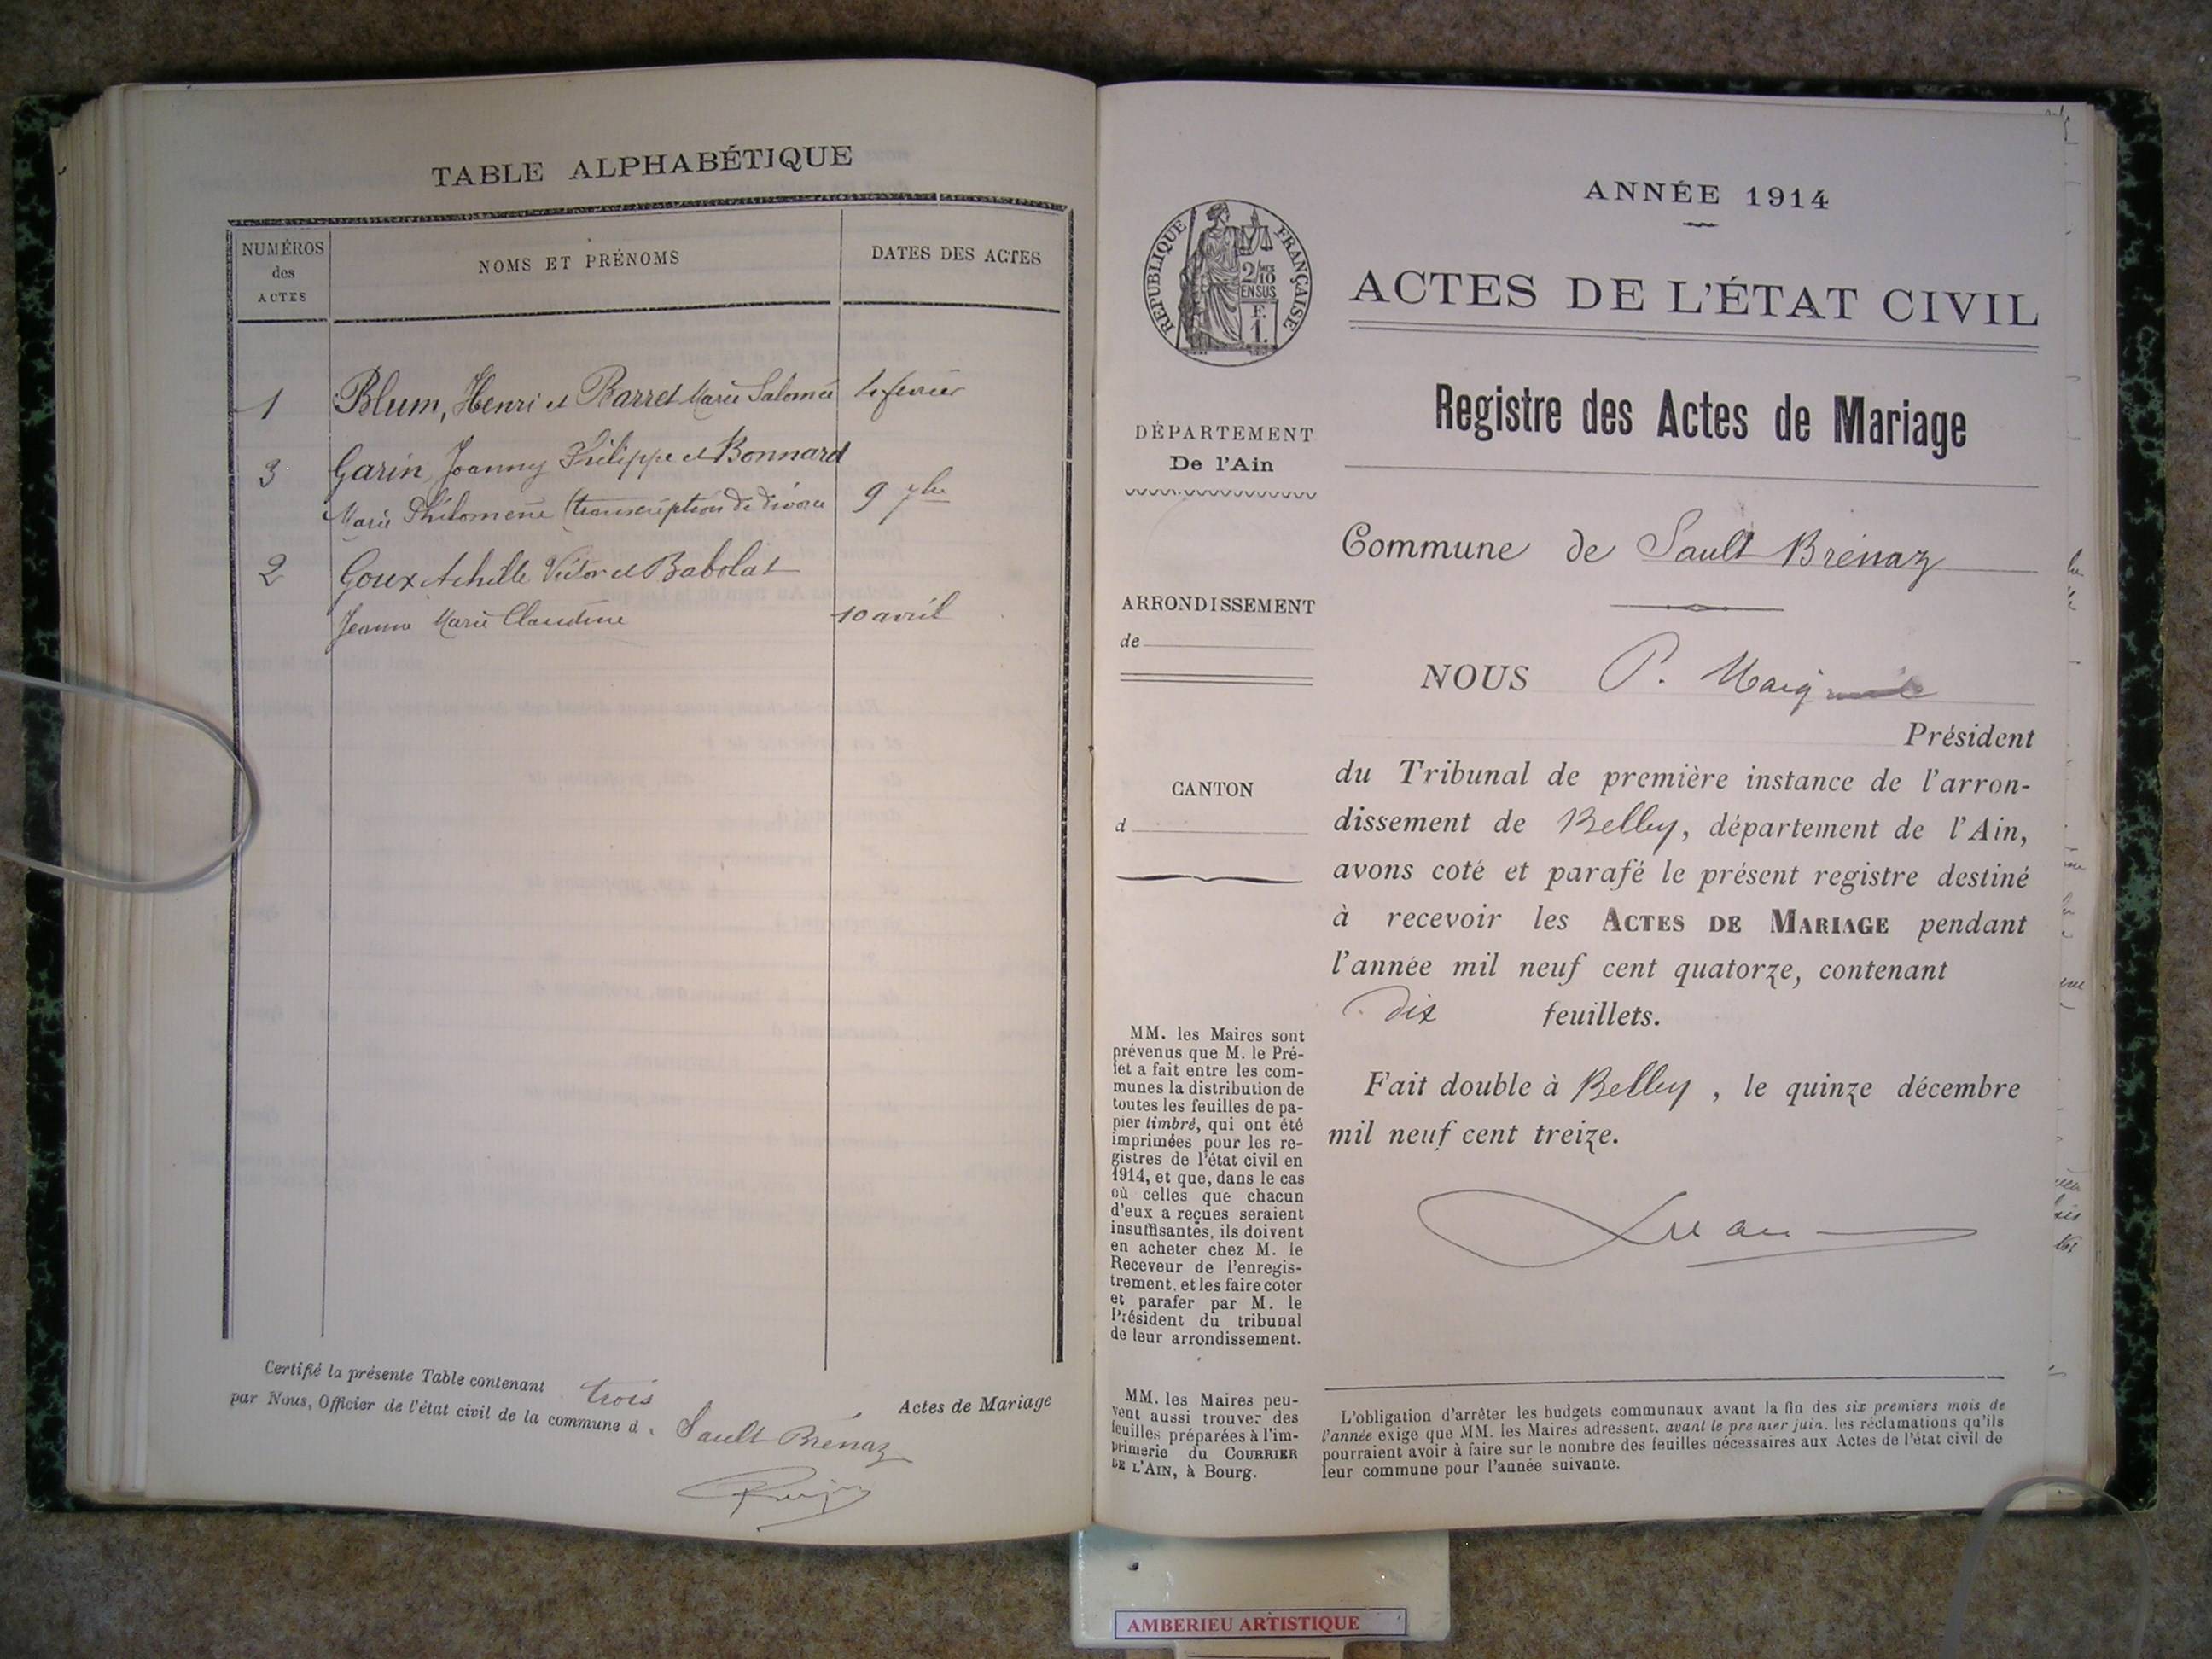 TABLE ALPHABÉTIQUE
NUMÉROS
des
ACTES
NOMS ET PRÉNOMS
DATES DES ACTES
1 Blum, Henri et Barret Marie Salomé 4 février
3 Garin Joanny Philippe et Bonnard
Marie Philomène (transcription de divorce 9 7bre
2 Goux Achille Victor et Babolat
Jeanne Marie Claudine 10 avril
Certifié la présente Table contenant trois Actes de Mariage
par Nous, Officier de l'état civil de la commune d. Sault Brénaz
ANNÉE 1914
RÉPUBLIQUE FRANÇAISE
2/10
EN SUS
F.
1.
ACTES DE L'ÉTAT CIVIL
Registre des Actes de Mariage
DÉPARTEMENT
De l'Ain
Commune de Sault Brénaz
ARRONDISSEMENT
de
CANTON
d
NOUS P.
Président
du Tribunal de première instance de l'arron-
dissement de Belley, département de l'Ain,
avons coté et parafé le présent registre destiné
à recevoir les ACTES DE MARIAGE pendant
l'année mil neuf cent quatorze, contenant
dix feuillets.
Fait double à Belley, le quinze décembre
mil neuf cent treize.
MM. les Maires sont
prévenus que M. le Pré-
fet a fait entre les com-
munes la distribution de
toutes les feuilles de pa-
pier timbré, qui ont été
imprimées pour les re-
gistres de l'état civil en
1914, et que, dans le cas
où celles que chacun
d'eux a reçues seraient
insuffisantes, ils doivent
en acheter chez M. le
Receveur de l'enregis-
trement, et les faire coter
et parafer par M. le
Président du tribunal
de leur arrondissement.
MM. les Maires peu-
vent aussi trouver des
feuilles préparées à l'im-
primerie du COURRIER
DE L'AIN, à Bourg.
L'obligation d'arrêter les budgets communaux avant la fin des six premiers mois de
l'année exige que MM. les Maires adressent, avant le premier juin, les réclamations qu'ils
pourraient avoir à faire sur le nombre des feuilles nécessaires aux Actes de l'état civil de
leur commune pour l'année suivante.
AMBERIEU ARTISTIQUE